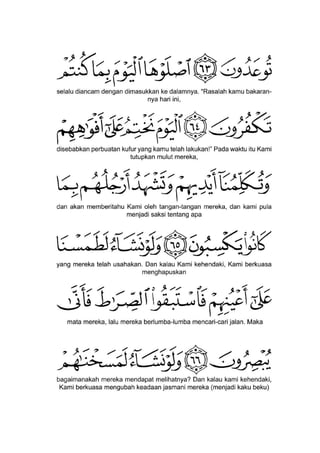 تُوعَدُونَ ﴿٦٣﴾ ٱصْلَوْهَا ٱلْيَوْمَ بِمَا كُنتُمْ
selalu diancam dengan dimasukkan ke dalamnya. "Rasalah kamu bakaran-
nya hari ini,
تَكْفُرُونَ ﴿٦٤﴾ ٱلْيَوْمَ نَخْتِمُ عَلَىٰٓ أَفْوَٰهِهِمْ
disebabkan perbuatan kufur yang kamu telah lakukan!" Pada waktu itu Kami
tutupkan mulut mereka,
وَتُكَلِّمُنَآ أَيْدِيهِمْ وَتَشْهَدُ أَرْجُلُهُم بِمَا
dan akan memberitahu Kami oleh tangan-tangan mereka, dan kami pula
menjadi saksi tentang apa
كَانُوا۟ يَكْسِبُونَ ﴿٦٥﴾ وَلَوْ نَشَآءُ لَطَمَسْنَا
yang mereka telah usahakan. Dan kalau Kami kehendaki, Kami berkuasa
menghapuskan
عَلَىٰٓ أَعْيُنِهِمْ فَٱسْتَبَقُوا۟ ٱلصِّرَٰطَ فَأَنَّىٰ
mata mereka, lalu mereka berlumba-lumba mencari-cari jalan. Maka
يُبْصِرُونَ ﴿٦٦﴾ وَلَوْ نَشَآءُ لَمَسَخْنَٰهُمْ
bagaimanakah mereka mendapat melihatnya? Dan kalau kami kehendaki,
Kami berkuasa mengubah keadaan jasmani mereka (menjadi kaku beku)